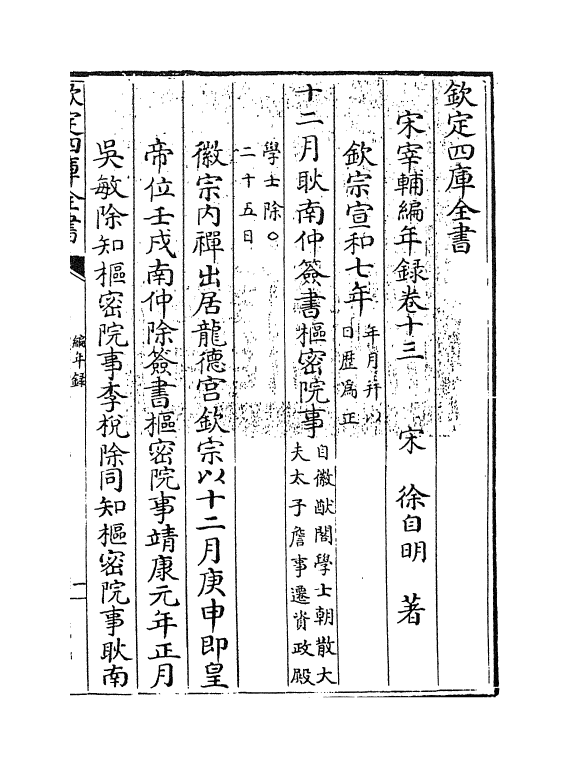 欽定四庫全書
宋宰輔編年錄卷十三　　宋　徐自明　著
欽宗宣和七年年月幷以
日歷爲正
十二月耿南仲簽書樞密院事自徽猷閣學士朝散大
夫太子詹事遷資政殿
學士除〇
二十五日
徽宗内禪出居龍德宫欽宗以十二月庚申即皇
帝位壬戌南仲除簽書樞密院事靖康元年正月
吳敏除知樞密院事李梲除同知樞密院事耿南
欽定四庫全書
編年錄